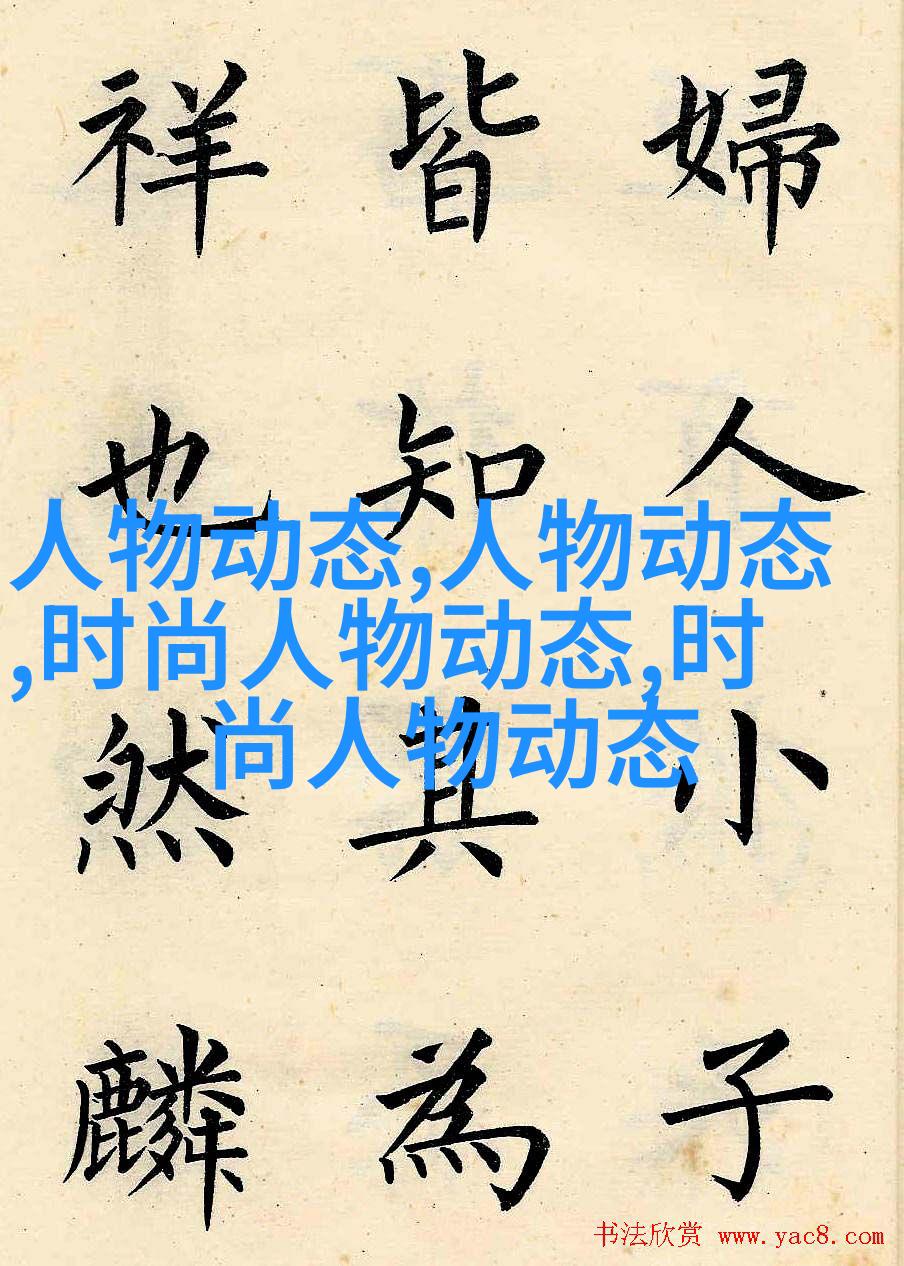 婦人小子
皆知其為
祥也然麟
人物动态,人物动态
,时尚人物动态,时
尚人物动态
书法欣赏 www.yac8.com